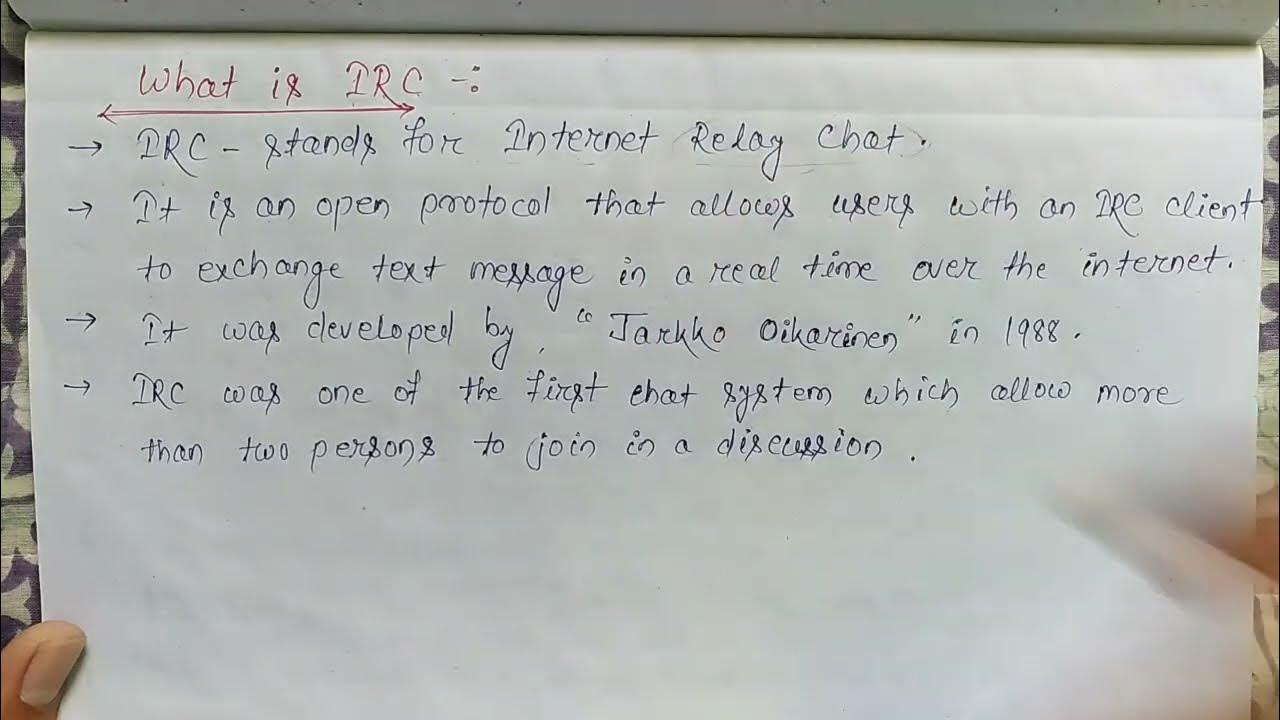 What is IRC -:
→ IRC - stands for Internet Relay Chat.
→ It is an open protocol that allows users with an IRC client
to exchange text message in a real time over the internet.
→ It was developed by, "Jarkko Oikarinen" in 1988.
→ IRC was one of the first chat system which allow more
than two persons to join in a discussion.